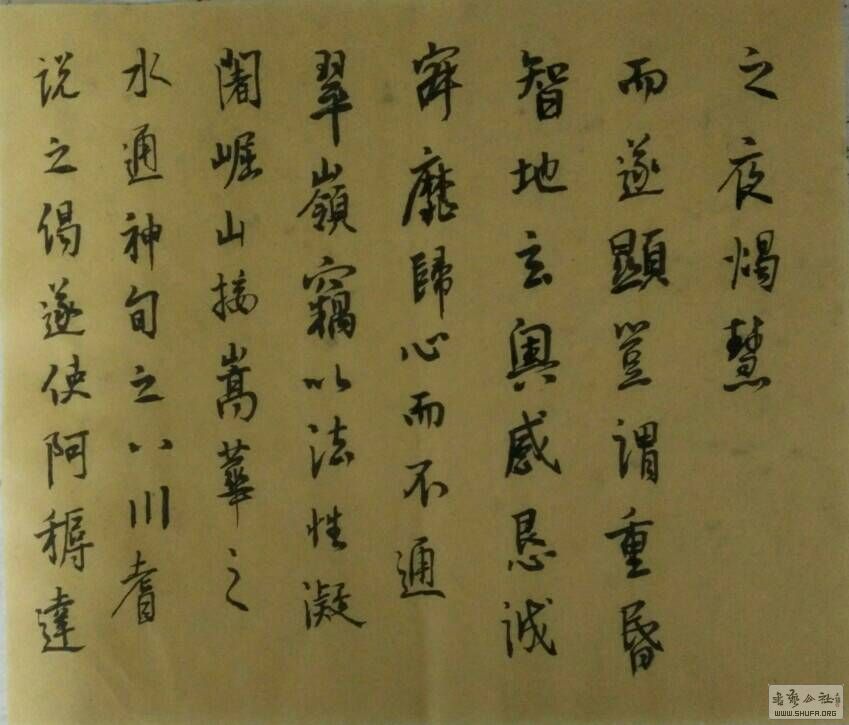 説之偈遂使阿耨達
水通神甸之八川耆
闍崛山接嵩華之
翠嶺竊以法性凝
寂靡歸心而不通
智地玄奧感恳誠
而遂顯豈謂重昏
之夜燭慧
書藝公社
WWW.SHUFA.ORG